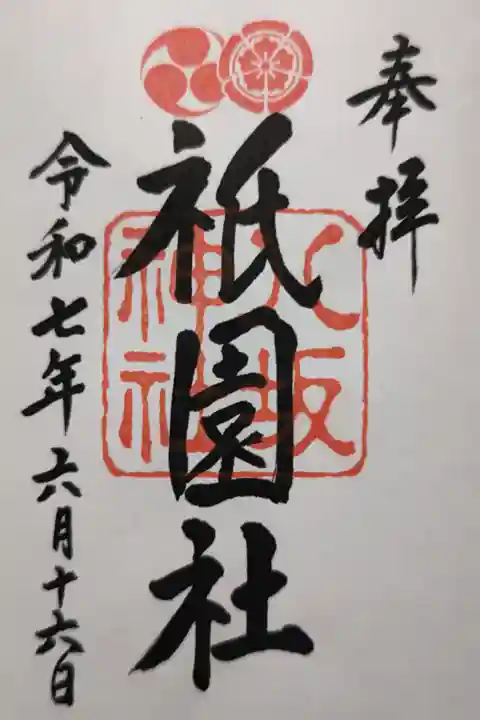 奉拝
八坂
神社
祇園社
令和七年六月十六日